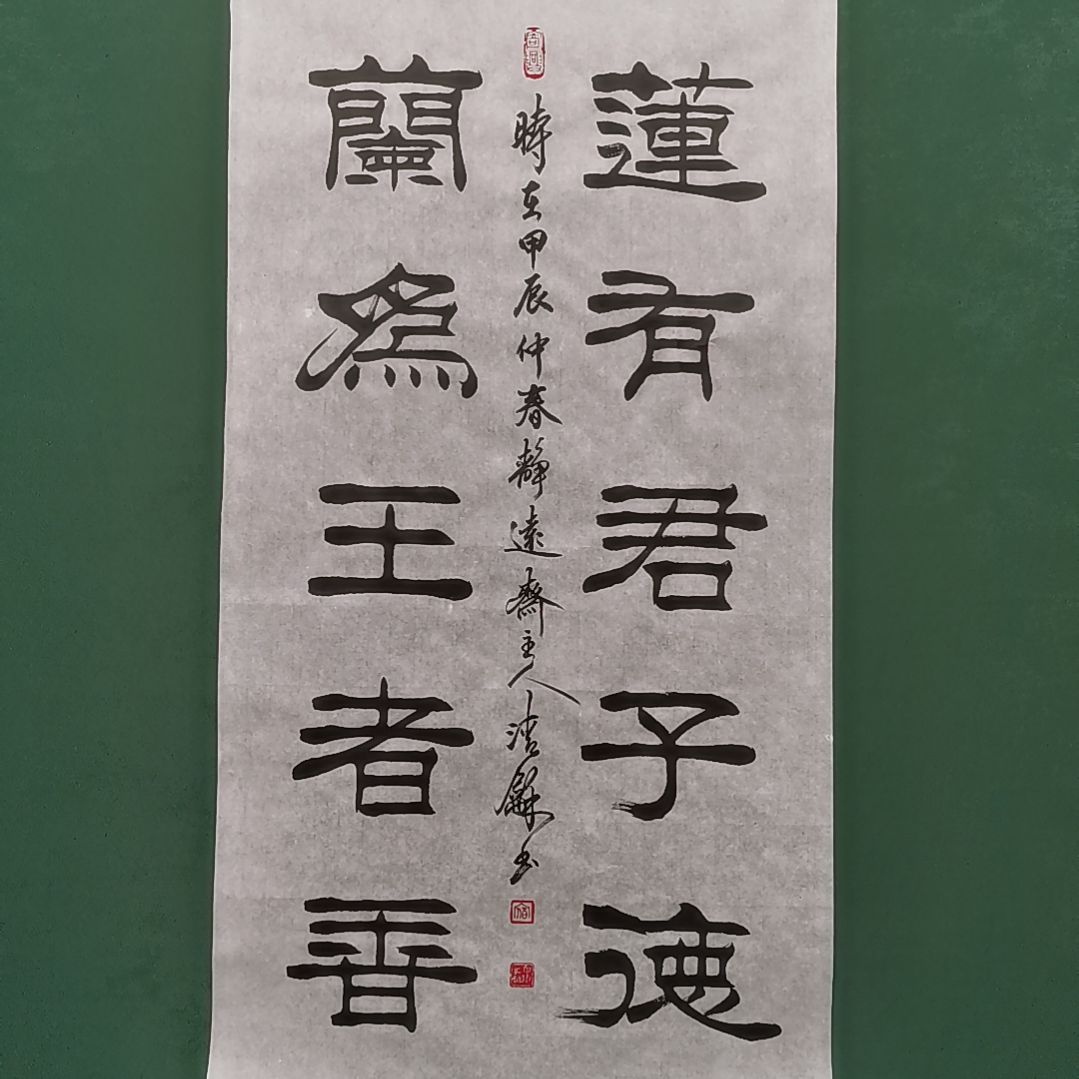 蓮有君子德
時在甲辰仲春靜遠齋主人清龢书
蘭為王者香